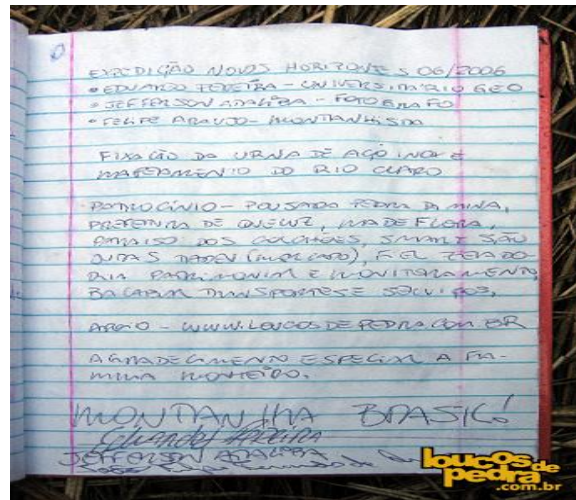 EXPEDIÇÃO NOVOS HORIZONTES 06/2006
• EDUARDO PEREIRA - UNIVERSITÁRIO GEO
• JEFFERSON ATALIBA - FOTOGRAFO
• FELIPE ARAUJO - MONTANHISTA
FIXAÇÃO DA URNA DE AÇO INOX E
MAPEAMENTO DO RIO CLARO
PATROCÍNIO - POUSADA PEDRA DA MINA,
PREFEITURA DE QUELUZ, MADEFLORA,
PARAISO DOS COLCHÕES, SMART SÃO
JUDAS TADEU (MERCADO), FIEL ZELADO-
RIA PATRIMONIAL E MONITORAMENTO,
TRANSPORTES E SERVIÇOS.
APOIO - WWW.LOUCOSDEPEDRA.COM.BR
AGRADECIMENTO ESPECIAL A FA-
MILIA MONTEIRO.
MONTANHA BRASIL!
Eduardo Pereira
JEFFERSON ATALIBA
loucos de
pedra
.com.br